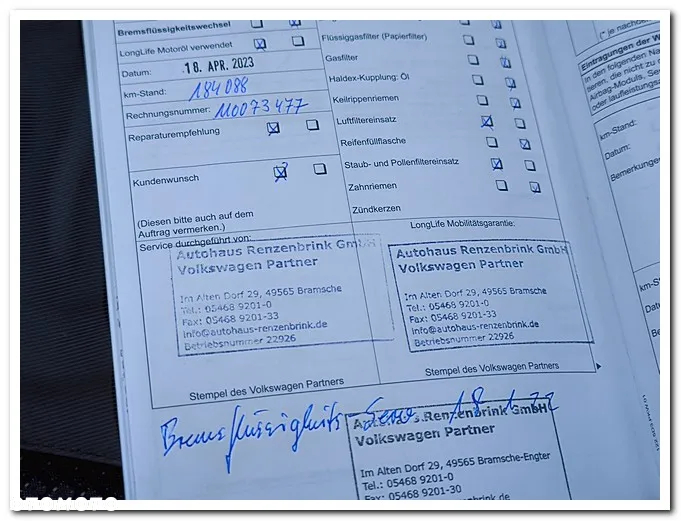 Bremsflüssigkeitswechsel
LongLife Motoröl verwendet
Datum: 18. APR. 2023
km-Stand: 184 088
Rechnungsnummer: 110073477
Reparaturempfehlung
Kundenwunsch
(Diesen bitte auch auf dem
Auftrag vermerken.)
Service durchgeführt von:
Autohaus Renzenbrink GmbH
Volkswagen Partner
Im Alten Dorf 29, 49565 Bramsche
Tel.: 05468 9201-0
Fax: 05468 9201-33
info@autohaus-renzenbrink.de
Betriebsnummer 22926
Stempel des Volkswagen Partners
Flüssiggasfilter (Papierfilter)
Gasfilter
Haldex-Kupplung: Öl
Keilrippenriemen
Luftfiltereinsatz
Reifenfüllflasche
Staub- und Pollenfiltereinsatz
Zahnriemen
Zündkerzen
LongLife Mobilitätsgarantie:
Autohaus Renzenbrink GmbH
Volkswagen Partner
Im Alten Dorf 29, 49565 Bramsche
Tel.: 05468 9201-0
Fax: 05468 9201-33
info@autohaus-renzenbrink.de
Betriebsnummer 22926
Stempel des Volkswagen Partners
Bremsflüssigkeits
Autohaus Renzenbrink GmbH
Volkswagen Partner
Im Alten Dorf 29, 49565 Bramsche-Engter
Tel.: 05468 9201-0
Fax: 05468 9201-30
Eintragungen der
In den folgenden
tieren, die nicht zu
Airbag-Moduls,
oder laufleistungs
km-Stand:
Datum:
km-St
OTOMOTO